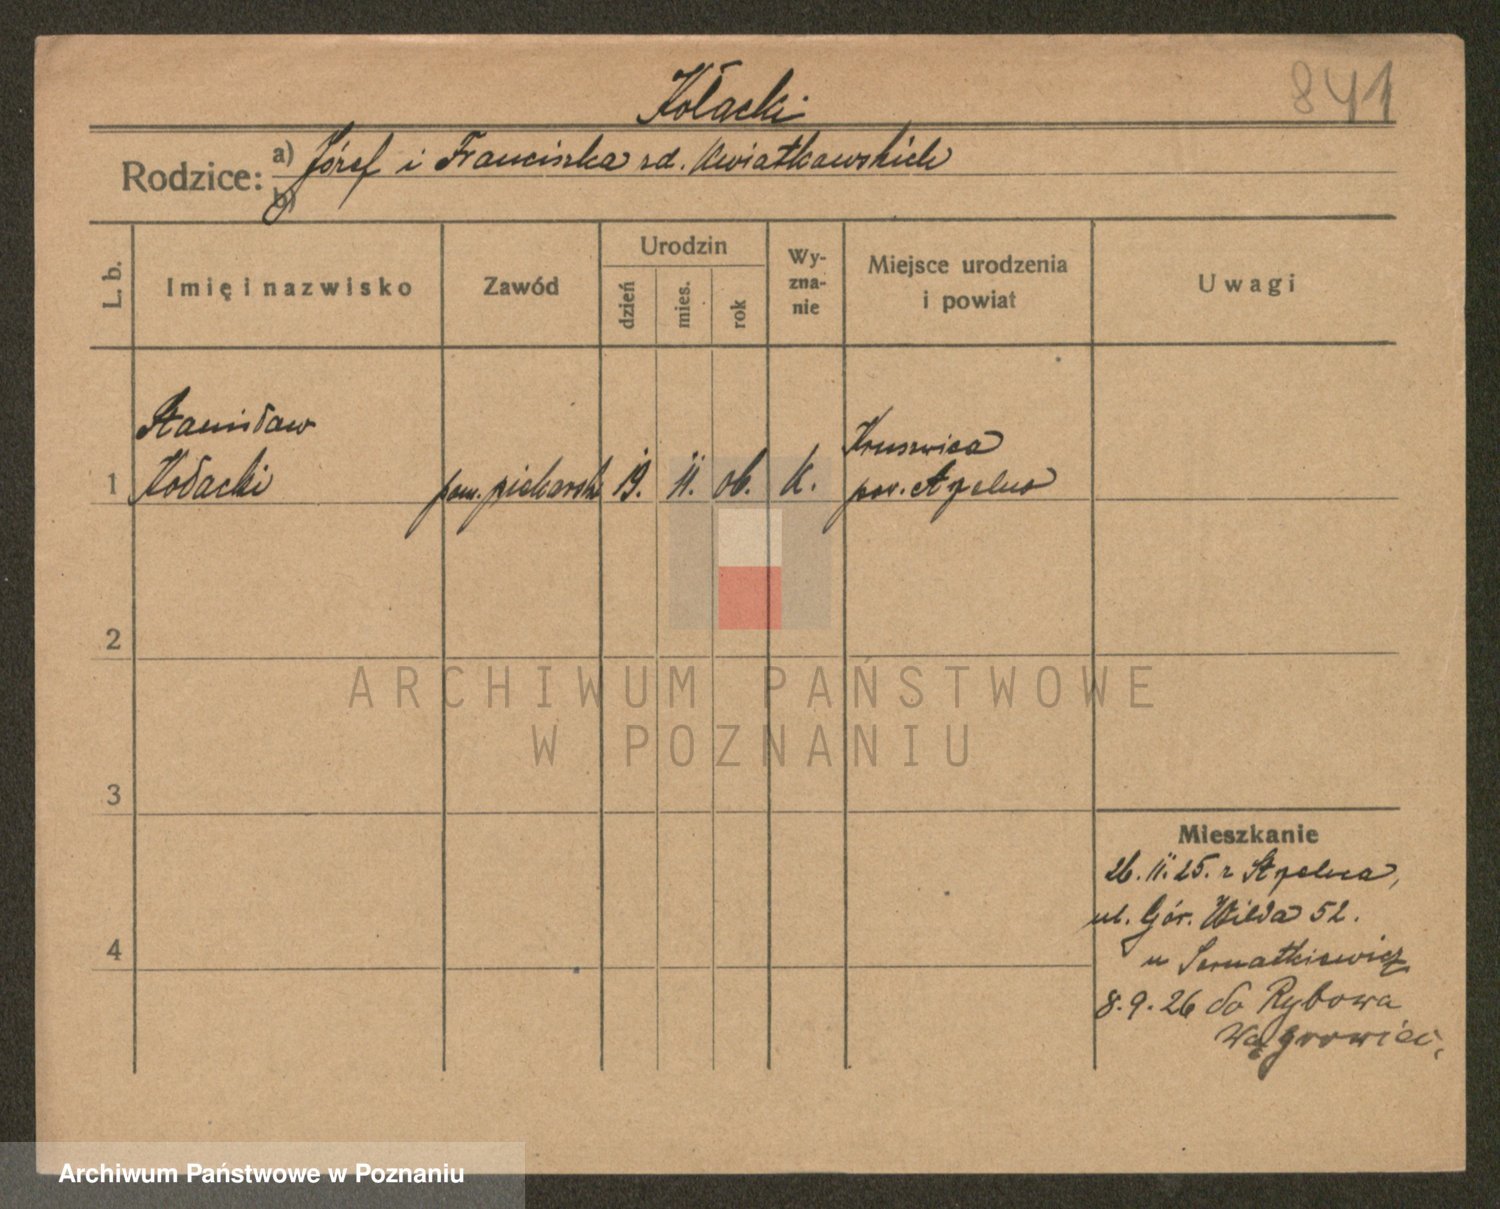 841
Kołacki
Rodzice: a) Józef i Franciszka zd. Kwiatkowskich
b)
L. b. Imię i nazwisko Zawód Urodzin dzień mies. rok Wyznanie Miejsce urodzenia i powiat Uwagi
Stanisław
1 Kołacki pom. piekarsk. 19. 11. 06. K. Kruszwica
pow. Strzelno
2
ARCHIWUM PAŃSTWOWE
W POZNANIU
3
Mieszkanie
26. 11. 25. z Strzelna,
ul. Gór. Wilda 52.
4
8.9.26 do Rybowa
Wągrowiec,
Archiwum Państwowe w Poznaniu